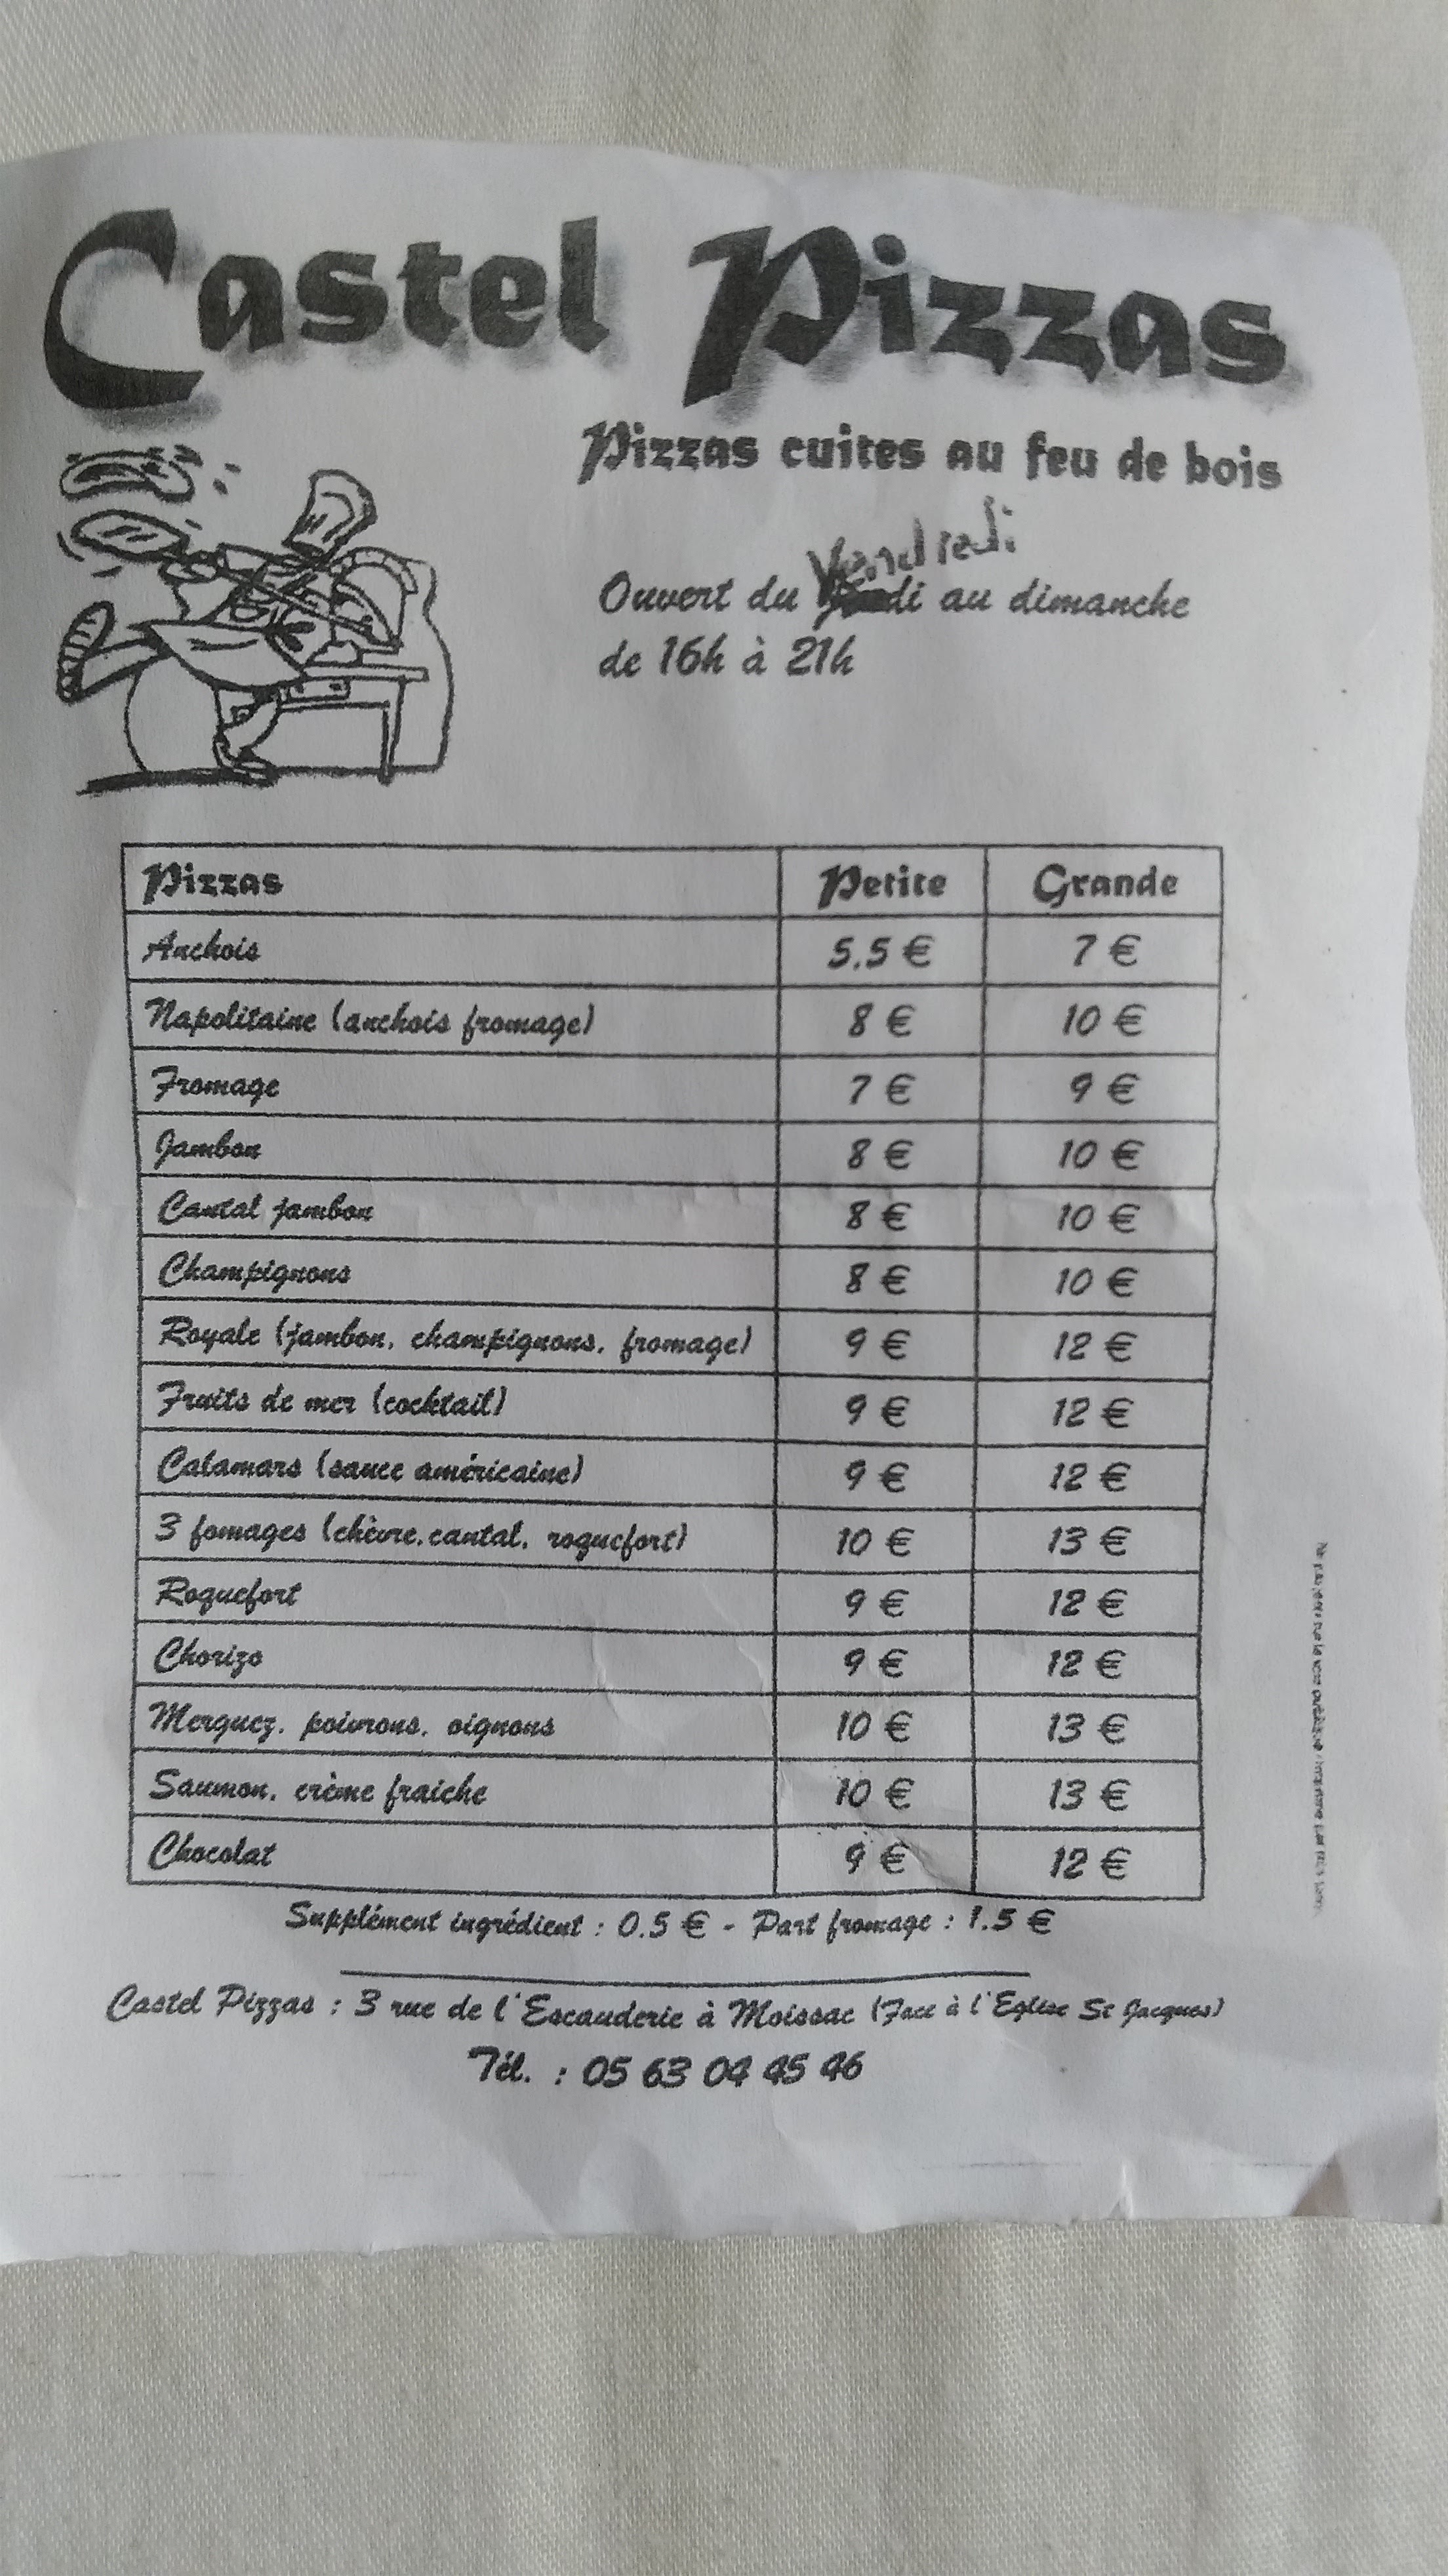 Castel Pizzas
Pizzas cuites au feu de bois
Vendredi
Ouvert du di au dimanche
de 16h à 21h
Pizzas Petite Grande
Anchois 5,5 € 7 €
Napolitaine (anchois fromage) 8 € 10 €
Fromage 7 € 9 €
Jambon 8 € 10 €
Cantal jambon 8 € 10 €
Champignons 8 € 10 €
Royale (jambon, champignons, fromage) 9 € 12 €
Fruits de mer (cocktail) 9 € 12 €
Calamars (sauce américaine) 9 € 12 €
3 fomages (chèvre,cantal, roquefort) 10 € 13 €
Roquefort 9 € 12 €
Chorizo 9 € 12 €
Merguez, poivrons, oignons 10 € 13 €
Saumon, crème fraiche 10 € 13 €
Chocolat 9 € 12 €
Supplément ingrédient : 0,5 € - Part fromage : 1,5 €
Castel Pizzas : 3 rue de l'Escauderie à Moissac (Face à l'Eglise St Jacques)
Tél. : 05 63 04 45 46